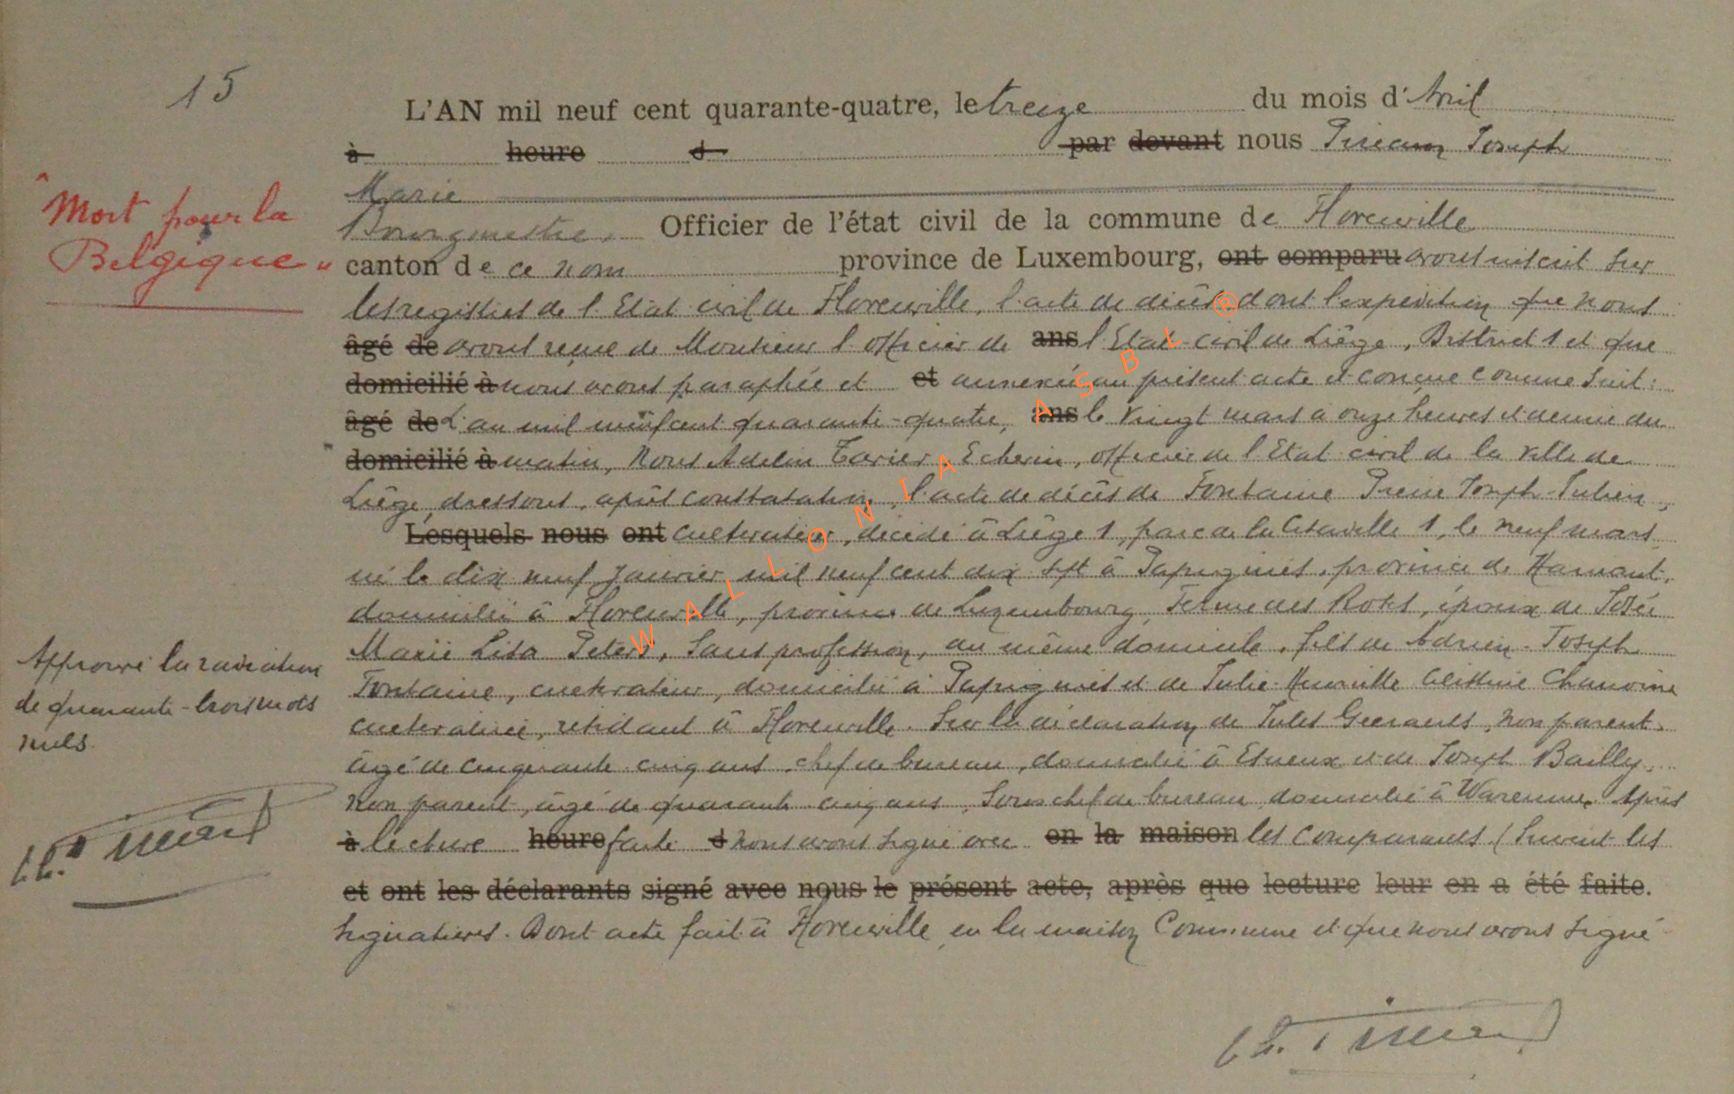 15
L'AN mil neuf cent quarante-quatre, le treize du mois d'Avril
à heure d par devant nous Joseph
Marie
Bourgmestre, Officier de l'état civil de la commune de Florenville
canton de ce nom province de Luxembourg, ont comparu avons inscrit sur
les registres de l'Etat civil de Florenville, l'acte de décès dont l'expédition que nous
âgé de avons reçue de Monsieur l'officier de ans l'Etat civil de Liège, District 1 et que
domicilié à nous avons paraphée et et annexée au présent acte et conçue comme suit:
âgé de L'an mil neuf cent quarante-quatre, ans le vingt mars à onze heures et demie du
domicilié à matin, Nous Adelin Tarier, Echevin, officier de l'Etat civil de la Ville de
Liège, dressons, après constatation, l'acte de décès de Fontaine Pierre Joseph Julien,
Lesquels nous ont cultivateur, décédé à Liège 1, parc de la Citadelle 1, le neuf mars,
né le dix neuf Janvier mil neuf cent dix sept à Papignies, province de Hainaut,
domicilié à Florenville, province de Luxembourg, Ferme des époux de
Marie Lisa Peters, sans profession, au même domicile, fils de Adrien Joseph
Fontaine, cultivateur, domicilié à Papignies et de Julie Chanoine
cultivatrice, résidant à Florenville. Sur la déclaration de Jules Geeraerts, non parent,
âgé de cinquante cinq ans, chef de bureau, domicilié à Esneux et de Joseph Bailly,
non parent, âgé de quarante cinq ans, sous chef de bureau domicilié à Waremme. Après
à lecture heure faite d nous avons signé avec en la maison les comparants. (Suivent les
et ont les déclarants signé avec nous le présent acte, après que lecture leur en a été faite.
signatures. Dont acte fait à Florenville, en la maison Commune et que nous avons signé
"Mort pour la
Belgique"
Approuvé la radiation
de quarante-trois mots
nuls.
WALLONIA ASBL ®